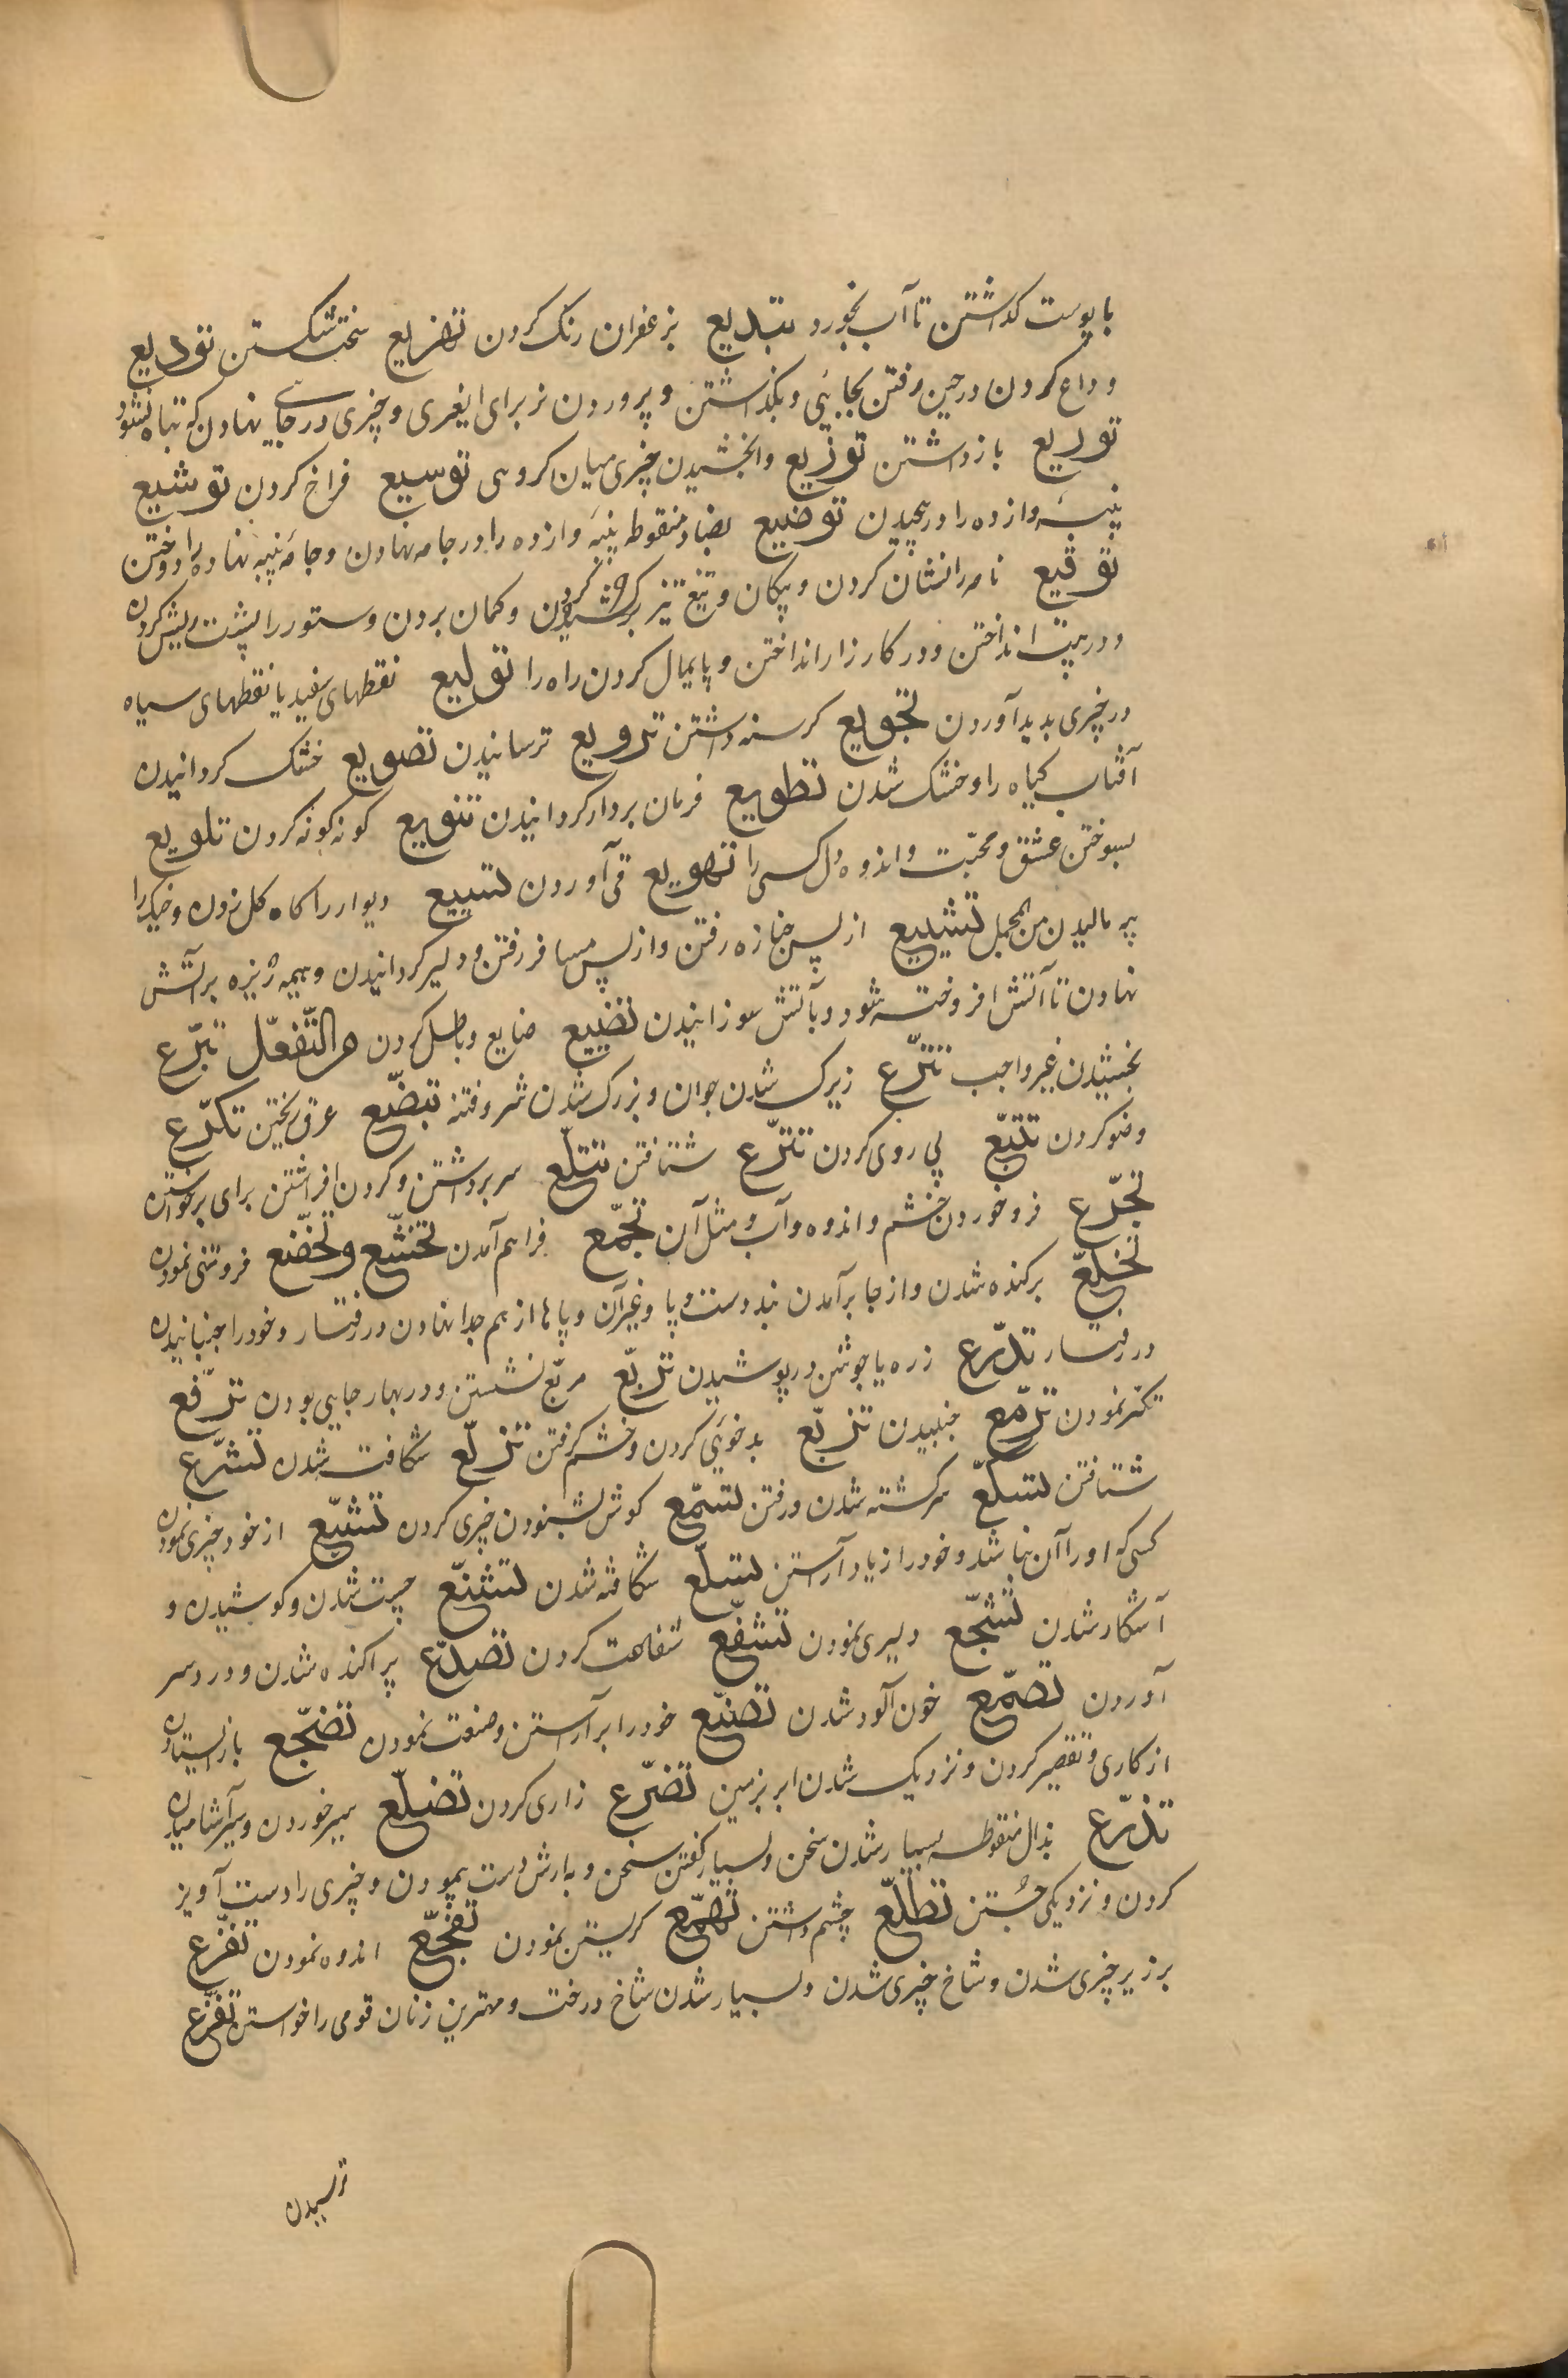 با پوست كذاشتن تا آب نخورد تبديع بزعفران رنك كردن تهزيع سخت شكستن توديع
وداع كردن در حين رفتن بجايئى و بكذاشتن و پروردن نر براى ايغرى و چيزى در جايى نهادن كه تباه نشود
توريع بازداشتن توزيع وابخشيدن چيزى ميان كروهى توسيع فراخ كردن توشيع
پنبه وازده را در پيچيدن توضيع بضاد منقوطه پنبه وازده را در جامه نهادن و جامه پنبه نهاده را دوختن
توقيع نامه را نشان كردن و پيكان و تيغ تيز كردن و كمان بردن و ستور را پشت ريش كردن
و در هيبت انداختن و در كارزار انداختن و پايمال كردن راه را توليع نقطهاى سفيد يا نقطهاى سياه
در چيزى بديد آوردن تجويع كرسنه داشتن ترويع ترسانيدن تصويع خشك كردانيدن
آفتاب كياه را و خشك شدن تطويع فرمان بردار كردانيدن تنويع كونه كونه كردن تلويع
بسوختن عشق و محبت و اندوه دل كسى را تهويع قى آوردن تسييع ديوار را كاه كل زدن و خيك را
پيه ماليدن من المجمل تشييع از پس جنازه رفتن و از پس مسافر رفتن و دلير كردانيدن و هيمه ريزه بر آتش
نهادن تا آتش افروخته شود و بآتش سوزانيدن تضييع ضايع و باطل كردن من التّفعّل تبرّع
بخشيدن غير واجب تترّع زيرك شدن جوان و بزرك شدن شر و فتنه تبضّع عرق ريختن تكرّع
وضو كردن تتبّع پى روى كردن تترّع شتافتن تتلّع سر برداشتن و كردن افراشتن براى برخواستن
تجرّع فرو خوردن خشم و اندوه و آب و مثل آن تجمّع فراهم آمدن تخشّع وتخضّع فروتنى نمودن
تخلّع بركنده شدن و از جا برآمدن بند دست و پا و غير آن و پاها از هم جدا نهادن در رفتار و خود را جنبانيدن
در رفتار تدرّع زره يا جوشن در پوشيدن تربّع مربّع نشستن و در بهار جايى بودن ترفّع
تكبّر نمودن ترمّع جنبيدن تزبّع بد خويى كردن و خشم كرفتن تزلّع شكافته شدن تسرّع
شتافتن تسكّع سركشته شدن و رفتن تسمّع كوش بشنودن چيزى كردن تشبّع از خود چيزى نمودن
كسى كه او را آن نباشد و خود را زياد آراستن تسلّع شكافته شدن تشنّع چست شدن و كوشيدن و
آشكار شدن تشجّع دليرى نمودن تشفّع شفاعت كردن تصدّع پراكنده شدن و درد سر
آوردن تصمّع خون آلود شدن تصنّع خود را برآراستن و صنعت نمودن تضجّع باز ايستادن
از كارى و تقصير كردن و نزديك شدن ابر بزمين تضرّع زارى كردن تضلّع سير خوردن و سير آشاميدن
تذرّع بذال منقوطه بسيار شدن سخن و بسيار كفتن سخن و به ارش دست پيمودن و چيزى را دست آويز
كردن و نزديكى جُستن تطلّع چشم داشتن تهمّع كريستن نمودن تفجّع اندوه نمودن تفرّع
بر زير چيزى شدن و شاخ چيزى شدن و بسيار شدن شاخ درخت و مهترين زنان قومى را خواستن تفزّع
ترسيدن